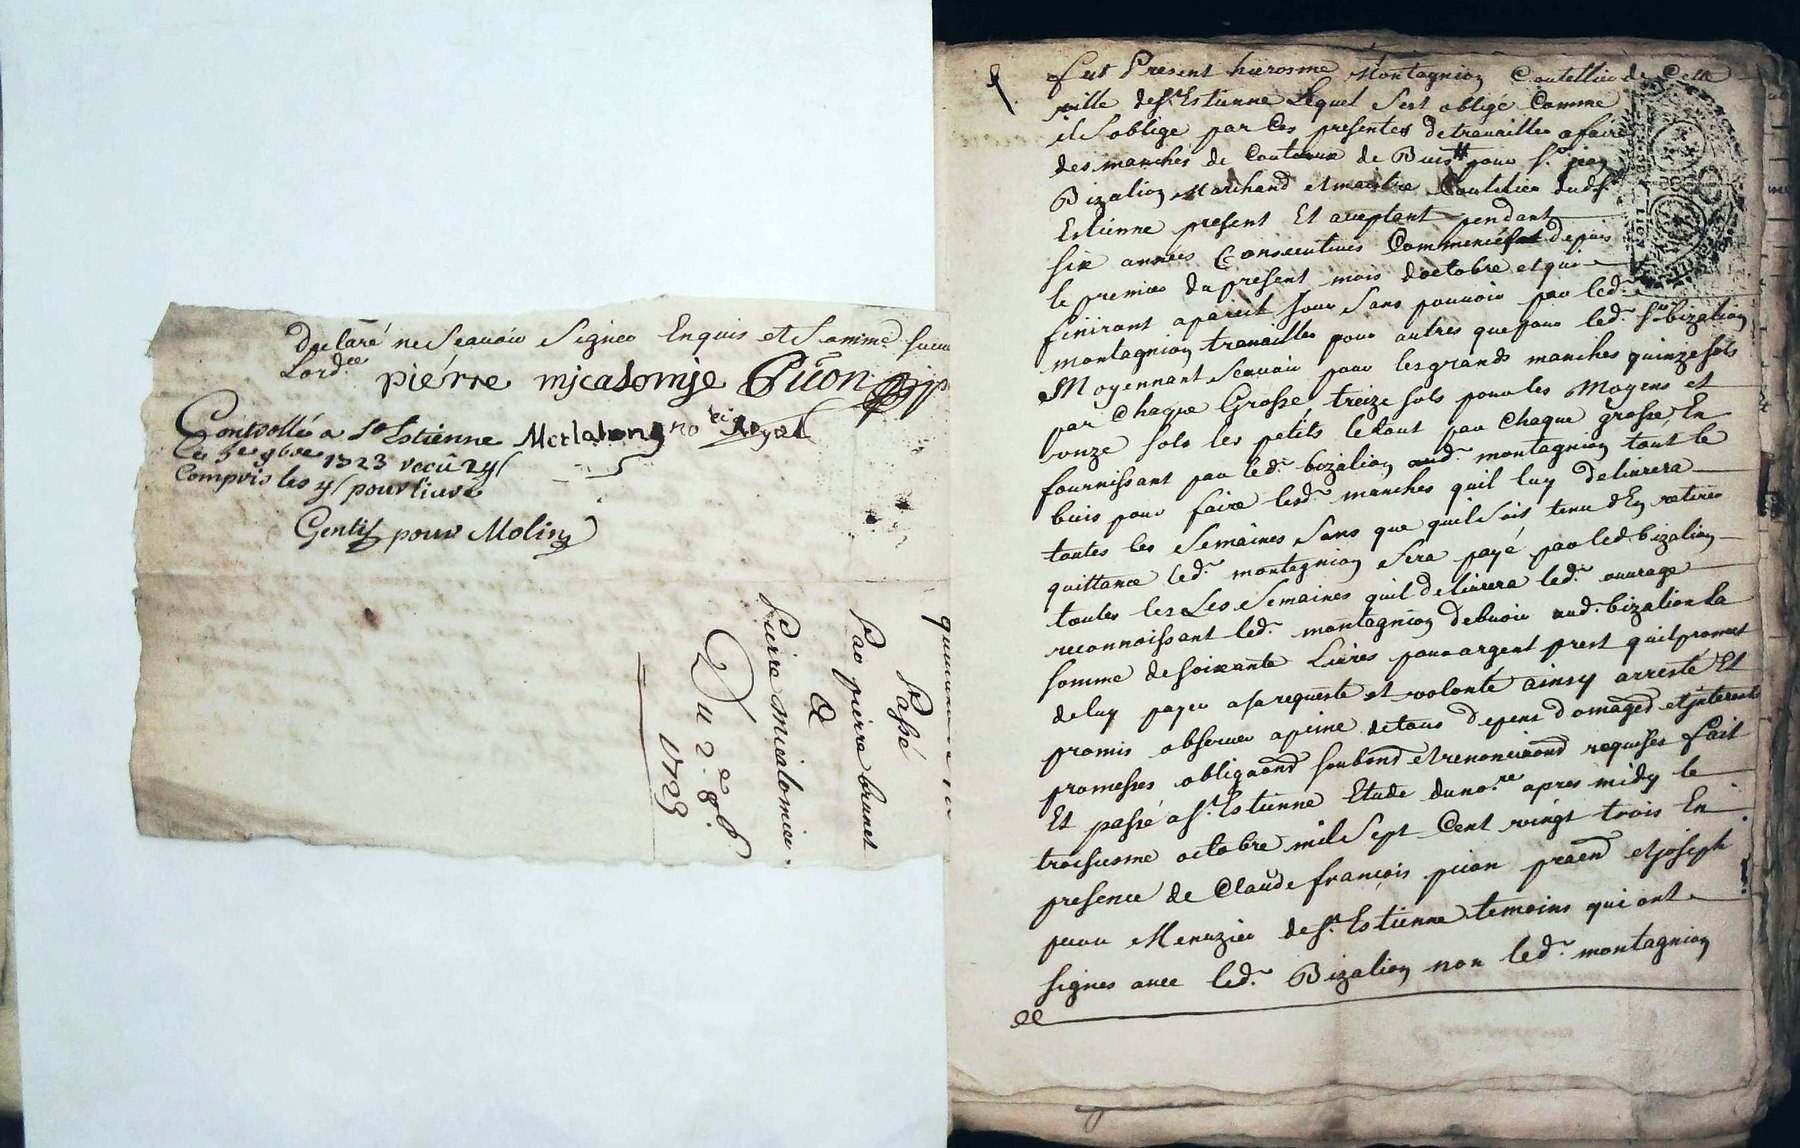 declaré ne scavoir signer Enquis et sommé suiv
Lord.ce
pierre micalomje Picon
Controllé a St Estienne Merlalong no.re Royal
Ce 5e 8bre 1723 receu
Compris les pour
Gentil pour Molin
Passé
Par pierre brunet
A
Pierre micalomier
Du 2.e 8.b
1723
fut Present hierosme Montagnion Coutellier de Cette
ville de St. Estienne Lequel sest obligé Comme
il soblige par Ces presentes de travailler a faire
des manches de Couteaux de Buis pour sr. jean
Bizalion Marchand et maistre Coutelier dud. St.
Estienne present Et aceptant pendant
six années Consecutives Commencé depuis
le premier du present mois doctobre et qui
finiront apareil Jour sans pouvoir par led.
montagnion travailler pour autres que pour led. sr. bizalion
Moyennant scavoir pour les grands manches quinze sols
par Chaque Grosse treize sols pour les Moyens et
onze sols les petits le tout par Chaque grosse En
fournissant par led. bizalion aud. montagnion tout le
buis pour faire lesd. manches quil luy delivrera
toutes les semaines sans que quil sois tenu dEn retirer
quittance led. montagnion sera payé par led bizalion
toutes les Les semaines quil delivrera led. ouvrage
reconnoissant led. montagnion debvoir aud. bizalion la
somme de soixante Livres pour argent prest quil promet
de luy payer asa requeste et volonté ainsy arresté Et
promis observer a peine de tous depens domages et jnterests
promesses obligaons soubons et renonciaons requises fait
Et passé a St. Estienne Etude du no.re apres midy le
troisiesme octobre mil sept Cent vingt trois En
presence de Claude françois picon pracn et joseph
Menuzier de St. Estienne temoins qui ont
signes avec led. Bizalion non led. montagnion